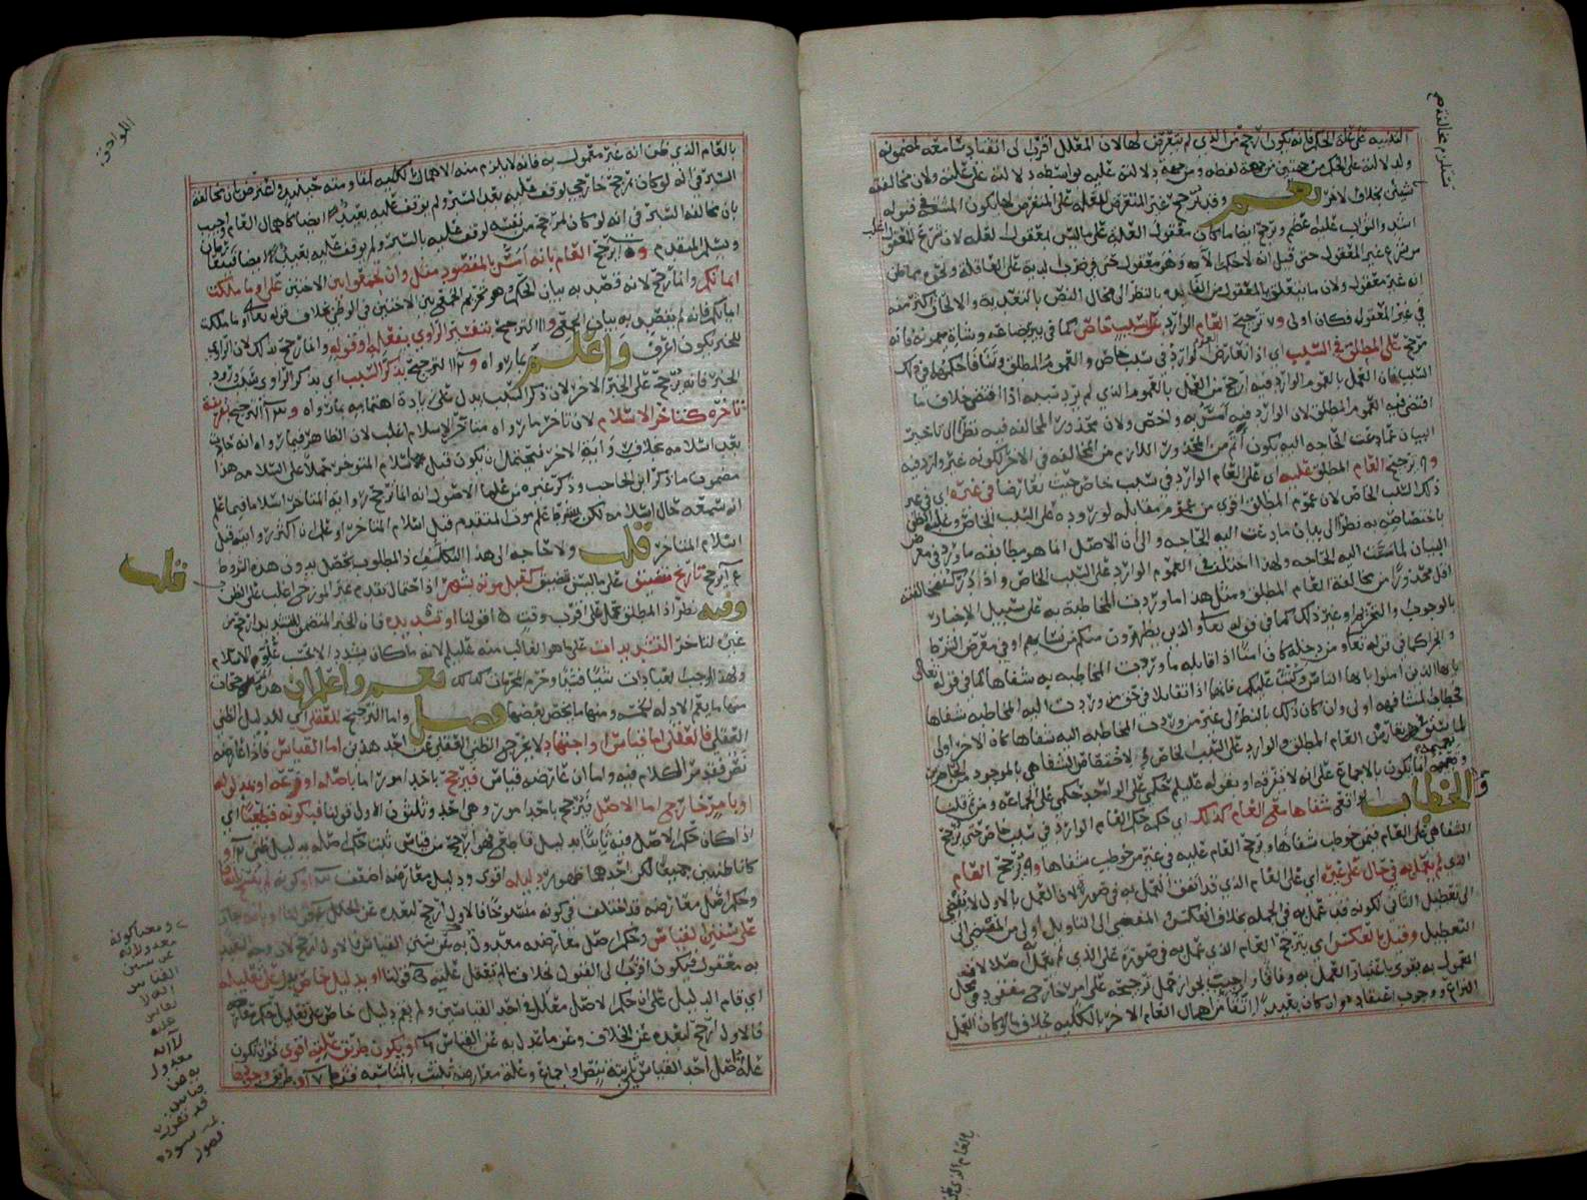 التنبيه على علة الحكم فانه يكون ارجح من الذي لم يتعرض لها لان المعلل اقرب الى انقياد سامعه لمضمونه
ولدلالته على الحكم من جهتين من جهة لفظه ومن جهة دلالته عليه بواسطة دلالته على علته ولان مخالفته
نعم وقد يرجح غير المتعرض للعلة على المتعرض لها لكون المشقة في قبوله
اشد والثواب عليه اعظم ويرجح ايضا ما كان معقول العلة على ما ليس بمعقول لعلة لان شرع المعقول اغلب
من شرع غير المعقول حتى قيل انه لا حكم الا وهو معقول حتى في ضرب الدية على العاقلة ونحوه مما ظن
انه غير معقول ولان ما يتعلق بالمعقول من الفائدة بالنظر الى محال النص بالتعدية والالحاق اكثر منه
في غير المعقول فكان اولى و٧ ترجيح العام الوارد على سبب خاص كما في بير بضاعة وشاة ميمونة فانه
مرجح على المطلق في السبب اي اذا تعارض العموم الوارد في سبب خاص والعموم المطلق وتنافا حكمهما في ذلك
السبب فان العمل بالعموم الوارد فيه ارجح من العمل بالعموم الذي لم يرد بسببه اذا اقتضى خلاف ما
اقتضى فيه العموم المطلق لان الوارد فيه امس به واخص ولان محذور المخالفة فيه نظرا الى تاخير
البيان عما دعت الحاجة اليه يكون اتم من المحذور اللازم من المخالفة في الاخر لكونه غير وارد فيه
و٨ ترجيح العام المطلق عليه اي على العام الوارد في سبب خاص حيث تعارضا في غيره اي في غير
ذلك السبب الخاص لان عموم المطلق اقوى من عموم مقابله لوروده على السبب الخاص وغلبة الظن
باختصاصه به نظرا الى بيان ما دعت اليه الحاجة والى ان الاصل انما هو مطابقة ما ورد في معرض
البيان لما مست اليه الحاجة ولهذا اختلف في العموم الوارد على السبب الخاص
اقل محذورا من مخالفة العام المطلق ومثل هذا ما وردت المخاطبة به على سبيل الاخبار
بالوجوب والتحريم وغير ذلك كما في قوله تعالى والذين يظهرون منكم من نسايهم او في معرض الشرط
والجزا كما في قوله تعالى ومن دخله كان امنا اذا قابله ما وردت المخاطبة به شفاها كما في قوله تعالى
يا ايها الذين امنوا يا ايها الناس وكتب عليكم فانهما اذا تقابلا في حق من وردت اليه المخاطبة شفاها
كان خطاب المشافهة اولى وان كان ذلك بالنظر الى غير من وردت المخاطبة اليه شفاها كان الاخر اولى
لما سبق في تعارض العام المطلق والوارد على السبب الخاص في اختصاص الشفاهي بالموجود
وتعميمه انما يكون بالاجماع على انه لا تفرقة او بقوله عليلم حكمي على الواحد حكمي على الجماعة
والخطاب الواقع شفاها مع العام كذلك اي حكمه حكم العام الوارد في سبب خاص حتى يرجح
الشفاهي على العام فيمن خوطب شفاها ويرجح العام عليه في غير من خوطب شفاها و٩ ترجيح العام
الذي لم يعمل به في حال على غيره اي على العام الذي قد اتفق العمل به في صورة لان العمل بالاول لا يفضي
الى تعطيل الثاني لكونه قد عمل به في الجملة بخلاف العكس والمفضي الى التاويل اولى من المفضي الى
التعطيل وقيل بالعكس اي يترجح العام الذي عمل به في صورة على الذي لم يعمل به اصلا
المعمول به يقوى باعتبار العمل به وفاقا واجيب بجواز حمل ترجيحه على امر خارجي مفقود في محل
النزاع ووجوب اعتقاده وان كان بعيدا اتفاقا من اهمال العام الاخر بالكلية بخلاف ما لو كان العمل
بالعام الذي
بالعام الذي ظن انه غير معمول به فانه لا يلزم منه الاهمال بالكلية
السير في انه لو كان مرجح خارجي لوقف عليه بعد السير ولم يوقف عليه بعيد ايضا كاهمال العام واجيب
بان مخالفة السير في انه لو كان لمرجح من نفسه لوقف عليه بالسير ولم يوقف عليه بعيد ايضا فيتقاومان
ويسلم المتقدم و١٠ ترجيح العام بانه امس بالمقصود مثل وان تجمعوا بين الاختين على او ما ملكت
ايمانكم وانما رجح لانه قصد به بيان الحكم وهو تحريم الجمع بين الاختين في الوطي بخلاف قوله تعالى او ما ملكت
ايمانكم فانه لم يقصد به بيان الجمع و١١ الترجيح بتفسير الراوي بفعله او قوله وانما رجح بذلك لان الراوي
للخبر يكون اعرف واعلم بما رواه و١٢ الترجيح بذكر السبب اي بذكر الراوي سبب ورود
الخبر فانه يرجح على الخبر الاخر لان ذكر السبب يدل على زيادة اهتمامه بما رواه و١٣ الترجيح بقرينة
تاخره كتاخر الاسلام لان تاخر ما رواه متاخر الاسلام اغلب لان الظاهر فيما رواه انه كان
بعد اسلامه بخلاف رواية الاخر فيحتمل ان يكون قبل اسلام المتوخر حملا على السلامة هذا
مضمون ما ذكر ابن الحاجب وذكر غيره من علما الاصول انه انما يرجح رواية المتاخر اسلاما فيما علم
انه سمعه حال اسلامه لكن فيما علم موت المتقدم قبل اسلام المتاخر او علم ان اكثر رواياته قبل
اسلام المتاخر قلت ولا حاجة الى هذا التكليف والمطلوب يحصل بدون هذه الشروط
و١٤ يرجح تاريخ مضيق على ما ليس بمضيق كقبل موته بشهر اذ احتمال تقدم غير المورخ اغلب على الظن
وفيه نظر اذ المطلق يحمل على اقرب وقت ١٥ اقولنا او تشديده فان الخبر المتضمن للتشديد ارجح من
غيره لتاخر التشديدات على ما هو الغالب منه عليلم لانه ما كان يشدد الا بحسب علو الاسلام
ولهذا اوجب العبادات شيئا فشيئا وحرم المحرمات كذلك نعم واعلم ان هذه المرجحات
منها ما يعم الادلة الخمسة ومنها ما يختص ببعضها فصل واما الترجيح للعقلي اي للدليل الظني
العقلي فالعقلي اما قياس او اجتهاد لا يخرج الظني العقلي عن احد هذين اما القياس فاذا عارضه
نص فقد مر الكلام فيه واما ان عارضه قياس فيرجح باحد امور اما باصله او فرعه او مدلوله
او بامر خارج اما الاصل فيرجح باحد امور وهي احد وثلثون الاول قولنا فبكونه قطعيا اي
اذا كان حكم الاصل فيه ثابتا بدليل قاطع فهو ارجح من قياس ثبت حكم اصله بدليل ظني ٢ و
كانا ظنيين جميعا لكن احدهما ظهور دليله اقوى ودليل معارضه اضعف منه ٣ او كونه لم ينسخ باتفاق
وحكم اصل معارضه قد اختلف في كونه منسوخا فالاول ارجح لبعده عن الخلل ٤ قولنا او بانه جار
على سنن القياس وحكم اصل معارضه معدول به عن سنن القياس فالاول ارجح لان وجه التعبد
به معقول فيكون اقرب الى القبول بخلاف ما لم يعقل علته ٥ قولنا او بدليل خاص على تعليله
اي قام الدليل على ان حكم الاصل معلل في احد القياسين ولم يقم دليل خاص على تعليل حكم معارضه
فالاول ارجح لبعده عن الخلاف وعن ما عدل به عن القياس ٦ او يكون طريق علته اقوى نحو ان يكون
علة اصل احد القياس ثابته بنص او اجماع وعلة معارضه ثبتت بالمناسبة فقط ٧ او طريق وجودها
قلت
ومعنا كونه
معدولا به
عن سنن
القياس
معدول
به عن
قياس
قد تقررت